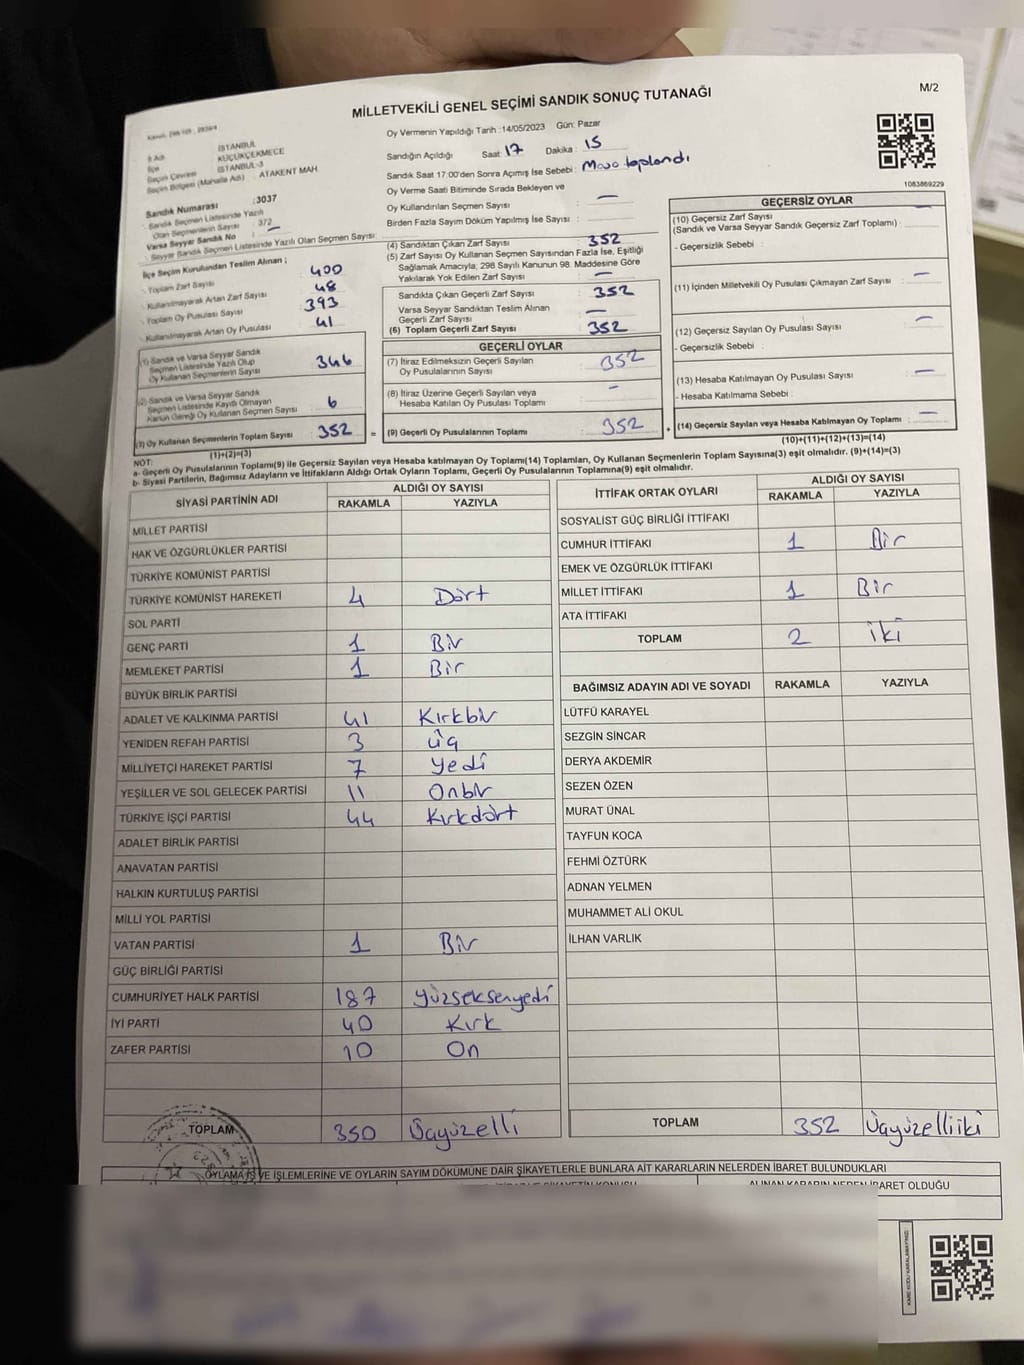 MİLLETVEKİLİ GENEL SEÇİMİ SANDIK SONUÇ TUTANAĞI
M/2
Oy Vermenin Yapıldığı Tarih :14/05/2023 Gün: Pazar
İl Adı İSTANBUL
İlçe KÜÇÜKÇEKMECE
Seçim Çevresi İSTANBUL-3
Seçim Bölgesi (Mahalle Adı) : ATAKENT MAH
Sandık Numarası :3037
Sandık Seçmen Listesinde Yazılı
Olan Seçmenlerin Sayısı : 372
Varsa Seyyar Sandık No :
Seyyar Sandık Seçmen Listesinde Yazılı Olan Seçmen Sayısı:
İlçe Seçim Kurulundan Teslim Alınan ;
Toplam Zarf Sayısı : 400
Kullanılmayarak Artan Zarf Sayısı : 48
Toplam Oy Pusulası Sayısı : 393
Kullanılmayarak Artan Oy Pusulası : 41
(1) Sandık ve Varsa Seyyar Sandık
Seçmen Listesinde Yazılı Olup
Oy Kullanan Seçmenlerin Sayısı : 346
(2) Sandık ve Varsa Seyyar Sandık
Seçmen Listesinde Kayıtlı Olmayan
Kanun Gereği Oy Kullanan Seçmen Sayısı : 6
(3) Oy Kullanan Seçmenlerin Toplam Sayısı : 352
(1)+(2)=(3)
Sandığın Açıldığı Saat: 17 Dakika : 15
Sandık Saat 17:00'den Sonra Açımış İse Sebebi : Masa toplandı
Oy Verme Saati Bitiminde Sırada Bekleyen ve
Oy Kullandırılan Seçmen Sayısı : —
Birden Fazla Sayım Döküm Yapılmış İse Sayısı :
(4) Sandıktan Çıkan Zarf Sayısı : 352
(5) Zarf Sayısı Oy Kullanan Seçmen Sayısından Fazla İse, Eşitliği
Sağlamak Amacıyla, 298 Sayılı Kanunun 98. Maddesine Göre
Yakılarak Yok Edilen Zarf Sayısı : —
Sandıkta Çıkan Geçerli Zarf Sayısı : 352
Varsa Seyyar Sandıktan Teslim Alınan
Geçerli Zarf Sayısı : —
(6) Toplam Geçerli Zarf Sayısı : 352
GEÇERLİ OYLAR
(7) İtiraz Edilmeksizin Geçerli Sayılan
Oy Pusulalarının Sayısı : 352
(8) İtiraz Üzerine Geçerli Sayılan veya
Hesaba Katılan Oy Pusulası Toplamı : —
= (9) Geçerli Oy Pusulalarının Toplamı : 352
1083869229
GEÇERSİZ OYLAR
(10) Geçersiz Zarf Sayısı : —
(Sandık ve Varsa Seyyar Sandık Geçersiz Zarf Toplamı) :
- Geçersizlik Sebebi :
(11) İçinden Milletvekili Oy Pusulası Çıkmayan Zarf Sayısı : —
(12) Geçersiz Sayılan Oy Pusulası Sayısı : —
- Geçersizlik Sebebi :
(13) Hesaba Katılmayan Oy Pusulası Sayısı : —
- Hesaba Katılmama Sebebi :
+ (14) Geçersiz Sayılan veya Hesaba Katılmayan Oy Toplamı : —
(10)+(11)+(12)+(13)=(14)
NOT:
a- Geçerli Oy Pusulalarının Toplamı(9) ile Geçersiz Sayılan veya Hesaba katılmayan Oy Toplamı(14) Toplamları, Oy Kullanan Seçmenlerin Toplam Sayısına(3) eşit olmalıdır. (9)+(14)=(3)
b- Siyasi Partilerin, Bağımsız Adayların ve İttifakların Aldığı Ortak Oyların Toplamı, Geçerli Oy Pusulalarının Toplamına(9) eşit olmalıdır.
SİYASİ PARTİNİN ADI ALDIĞI OY SAYISI
RAKAMLA YAZIYLA
MİLLET PARTİSİ
HAK VE ÖZGÜRLÜKLER PARTİSİ
TÜRKİYE KOMÜNİST PARTİSİ
TÜRKİYE KOMÜNİST HAREKETİ 4 Dört
SOL PARTİ
GENÇ PARTİ 1 Bir
MEMLEKET PARTİSİ 1 Bir
BÜYÜK BİRLİK PARTİSİ
ADALET VE KALKINMA PARTİSİ 41 Kırkbir
YENİDEN REFAH PARTİSİ 3 üç
MİLLİYETÇİ HAREKET PARTİSİ 7 yedi
YEŞİLLER VE SOL GELECEK PARTİSİ 11 Onbir
TÜRKİYE İŞÇİ PARTİSİ 44 Kırkdört
ADALET BİRLİK PARTİSİ
ANAVATAN PARTİSİ
HALKIN KURTULUŞ PARTİSİ
MİLLİ YOL PARTİSİ
VATAN PARTİSİ 1 Bir
GÜÇ BİRLİĞİ PARTİSİ
CUMHURİYET HALK PARTİSİ 187 yüzseksenyedi
İYİ PARTİ 40 Kırk
ZAFER PARTİSİ 10 On
TOPLAM 350 Üçyüzelli
İTTİFAK ORTAK OYLARI ALDIĞI OY SAYISI
RAKAMLA YAZIYLA
SOSYALİST GÜÇ BİRLİĞİ İTTİFAKI
CUMHUR İTTİFAKI 1 Bir
EMEK VE ÖZGÜRLÜK İTTİFAKI
MİLLET İTTİFAKI 1 Bir
ATA İTTİFAKI
TOPLAM 2 iki
BAĞIMSIZ ADAYIN ADI VE SOYADI RAKAMLA YAZIYLA
LÜTFÜ KARAYEL
SEZGİN SİNCAR
DERYA AKDEMİR
SEZEN ÖZEN
MURAT ÜNAL
TAYFUN KOCA
FEHMİ ÖZTÜRK
ADNAN YELMEN
MUHAMMET ALİ OKUL
İLHAN VARLIK
TOPLAM 352 Üçyüzelliiki
OYLAMA İŞ VE İŞLEMLERİNE VE OYLARIN SAYIM DÖKÜMÜNE DAİR ŞİKAYETLERLE BUNLARA AİT KARARLARIN NELERDEN İBARET BULUNDUKLARI
ALINAN KARARIN NEDEN İBARET OLDUĞU